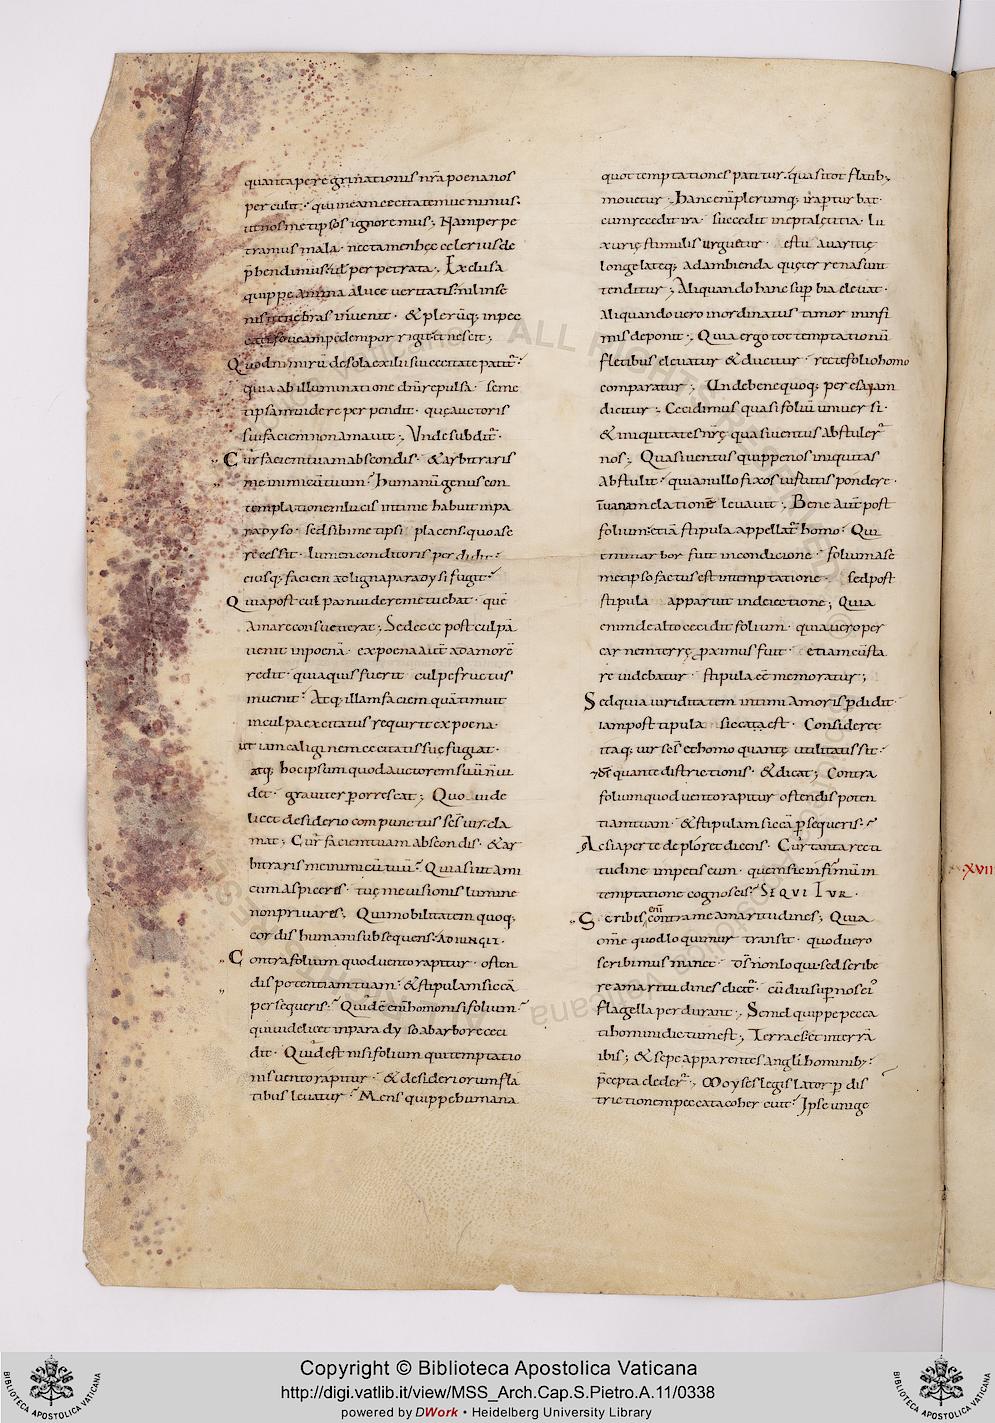 quanta peregrinationis nr̄a poena nos
perculit· qui in eam cecitatem uenimus·
ut nosmetipsos ignoremus; Nam perpe
tramus mala· nec tamen hęc celerius de
p̄hendimus· uel perpetrata·; Exclusa
quippe anima a luce ueritatis· nil in se
nisi tenebras inuenit· & plerūq; in pec
cati foueam pedem porrigit· et nescit;
Quod nimirū de sola exilii sui cecitate patit̄·
quia ab illuminatione dn̄i repulsa· seme
tipsam uidere perpendit· quę auctoris
sui faciem non amauit·; Unde subdit̄·
Cur faciem tuam abscondis· & arbitraris
me inimicū tuum? Humanū genus con
templationem lucis intime habuit in pa
radyso· sed sibimetipsi placens· quo a se
recessit· lumen conditoris perdidit·
eiusq; faciem ad ligna paradysi fugit·
Quia post culpam uidere metuebat· quē
amare consueuerat·; Sed ecce post culpā
uenit in poenā· ex poena aut̄ ad amorē
redit· quia quis fuerit culpe fructus
inuenit· Atq; illam faciem quā timuit
in culpa excitatus requirit ex poena·
ut iam caliginem cecitatis suę fugiat·
atq; hoc ipsum quod auctorem suū n̄ ui
det· grauiter p̄orrescat; Quo uide
licet desiderio compunctus sc̄s uir· cla
mat; Cur faciem tuam abscondis· & ar
bitraris me inimicū tuū? Quia si ut ami
cum aspiceres· tuę me uisionis lumine
non priuares; Qui mobilitatem quoq;
cordis humani subsequens· ADIUNGIT·
Contra folium quod uento rapitur· osten
dis potentiam tuam· & stipulam siccā
persequeris? Quid ē eni homo nisi folium
qui uidelicet in paradyso ab arbore ceci
dit· Quid est nisi folium qui temptatio
nis uento rapitur· & desideriorum fla
tibus leuatur? Mens quippe humana
quot temptationes patitur· quasi tot flatib;
mouetur·; Hanc eni plerumq; ira p̄turbat·
cum recedit ira· succedit inepta lętitia· Lu
xurię stimulis urguetur· estu auaritię
longe lateq; ad ambienda quę terrena sunt
tenditur; Aliquando hanc sup̄bia eleuat·
Aliquando uero inordinatus timor in infi
mis deponit· Quia ergo tot temptationū
fletibus eleuatur & ducitur· recte folio homo
comparatur·; Unde bene quoq; per esaiam
dicitur·; Cecidimus quasi foliū uniuersi·
& iniquitates nr̄ę quasi uentus abstuler̄
nos; Quasi uentus quippe nos iniquitas
abstulit· quia nullo fixos uirtutis pondere·
in uanam elationē leuauit·; Bene aut̄ post
folium etiā stipula appellat̄ homo· Qui
enim arbor fuit in condicione· folium a se
metipso factus est in temptatione· sed post
stipula apparuit in deiectione; Quia
enim de alto cecidit folium· quia uero per
carnem terrę p̄ximus fuit· etiam cū sta
re uidebatur· stipula eē memoratur;
Sed quia uiriditatem intimi amoris p̄didit·
iam postipula siccata est· Consideret
itaq; uir sc̄s et homo quantę uilitatis sit·
& ds̄ quante districtionis· & dicat; Contra
folium quod uento rapitur ostendis poten
tiam tuam· & stipulam siccā p̄sequeris·?
Ac si aperte deploret dicens· Cur tanta recti
tudine impetis eum· quem sic infirmū in
temptatione cognoscis? SEQUITUR·
Scribis enī contra me amaritudines; Quia
om̄e quod loquimur transit· quod uero
scribimus manet· ds̄ non loqui· sed scribe
re amaritudines dicit̄· cū diu sup̄ nos ei'
flagella perdurant·; Semel quippe pecca
ti homini dictum est; Terra es· et in terrā
ibis; & sepe apparentes angli hominib;
p̄cepta deder̄·; Moyses legislator p̄ dis
trictionem peccata cohercuit· Ipse unige
·XVII
ALL RIGHTS RESERVED
Copyright © Biblioteca Apostolica Vaticana
http://digi.vatlib.it/view/MSS_Arch.Cap.S.Pietro.A.11/0338
powered by DWork • Heidelberg University Library
BIBLIOTECA APOSTOLICA VATICANA
BIBLIOTECA APOSTOLICA VATICANA